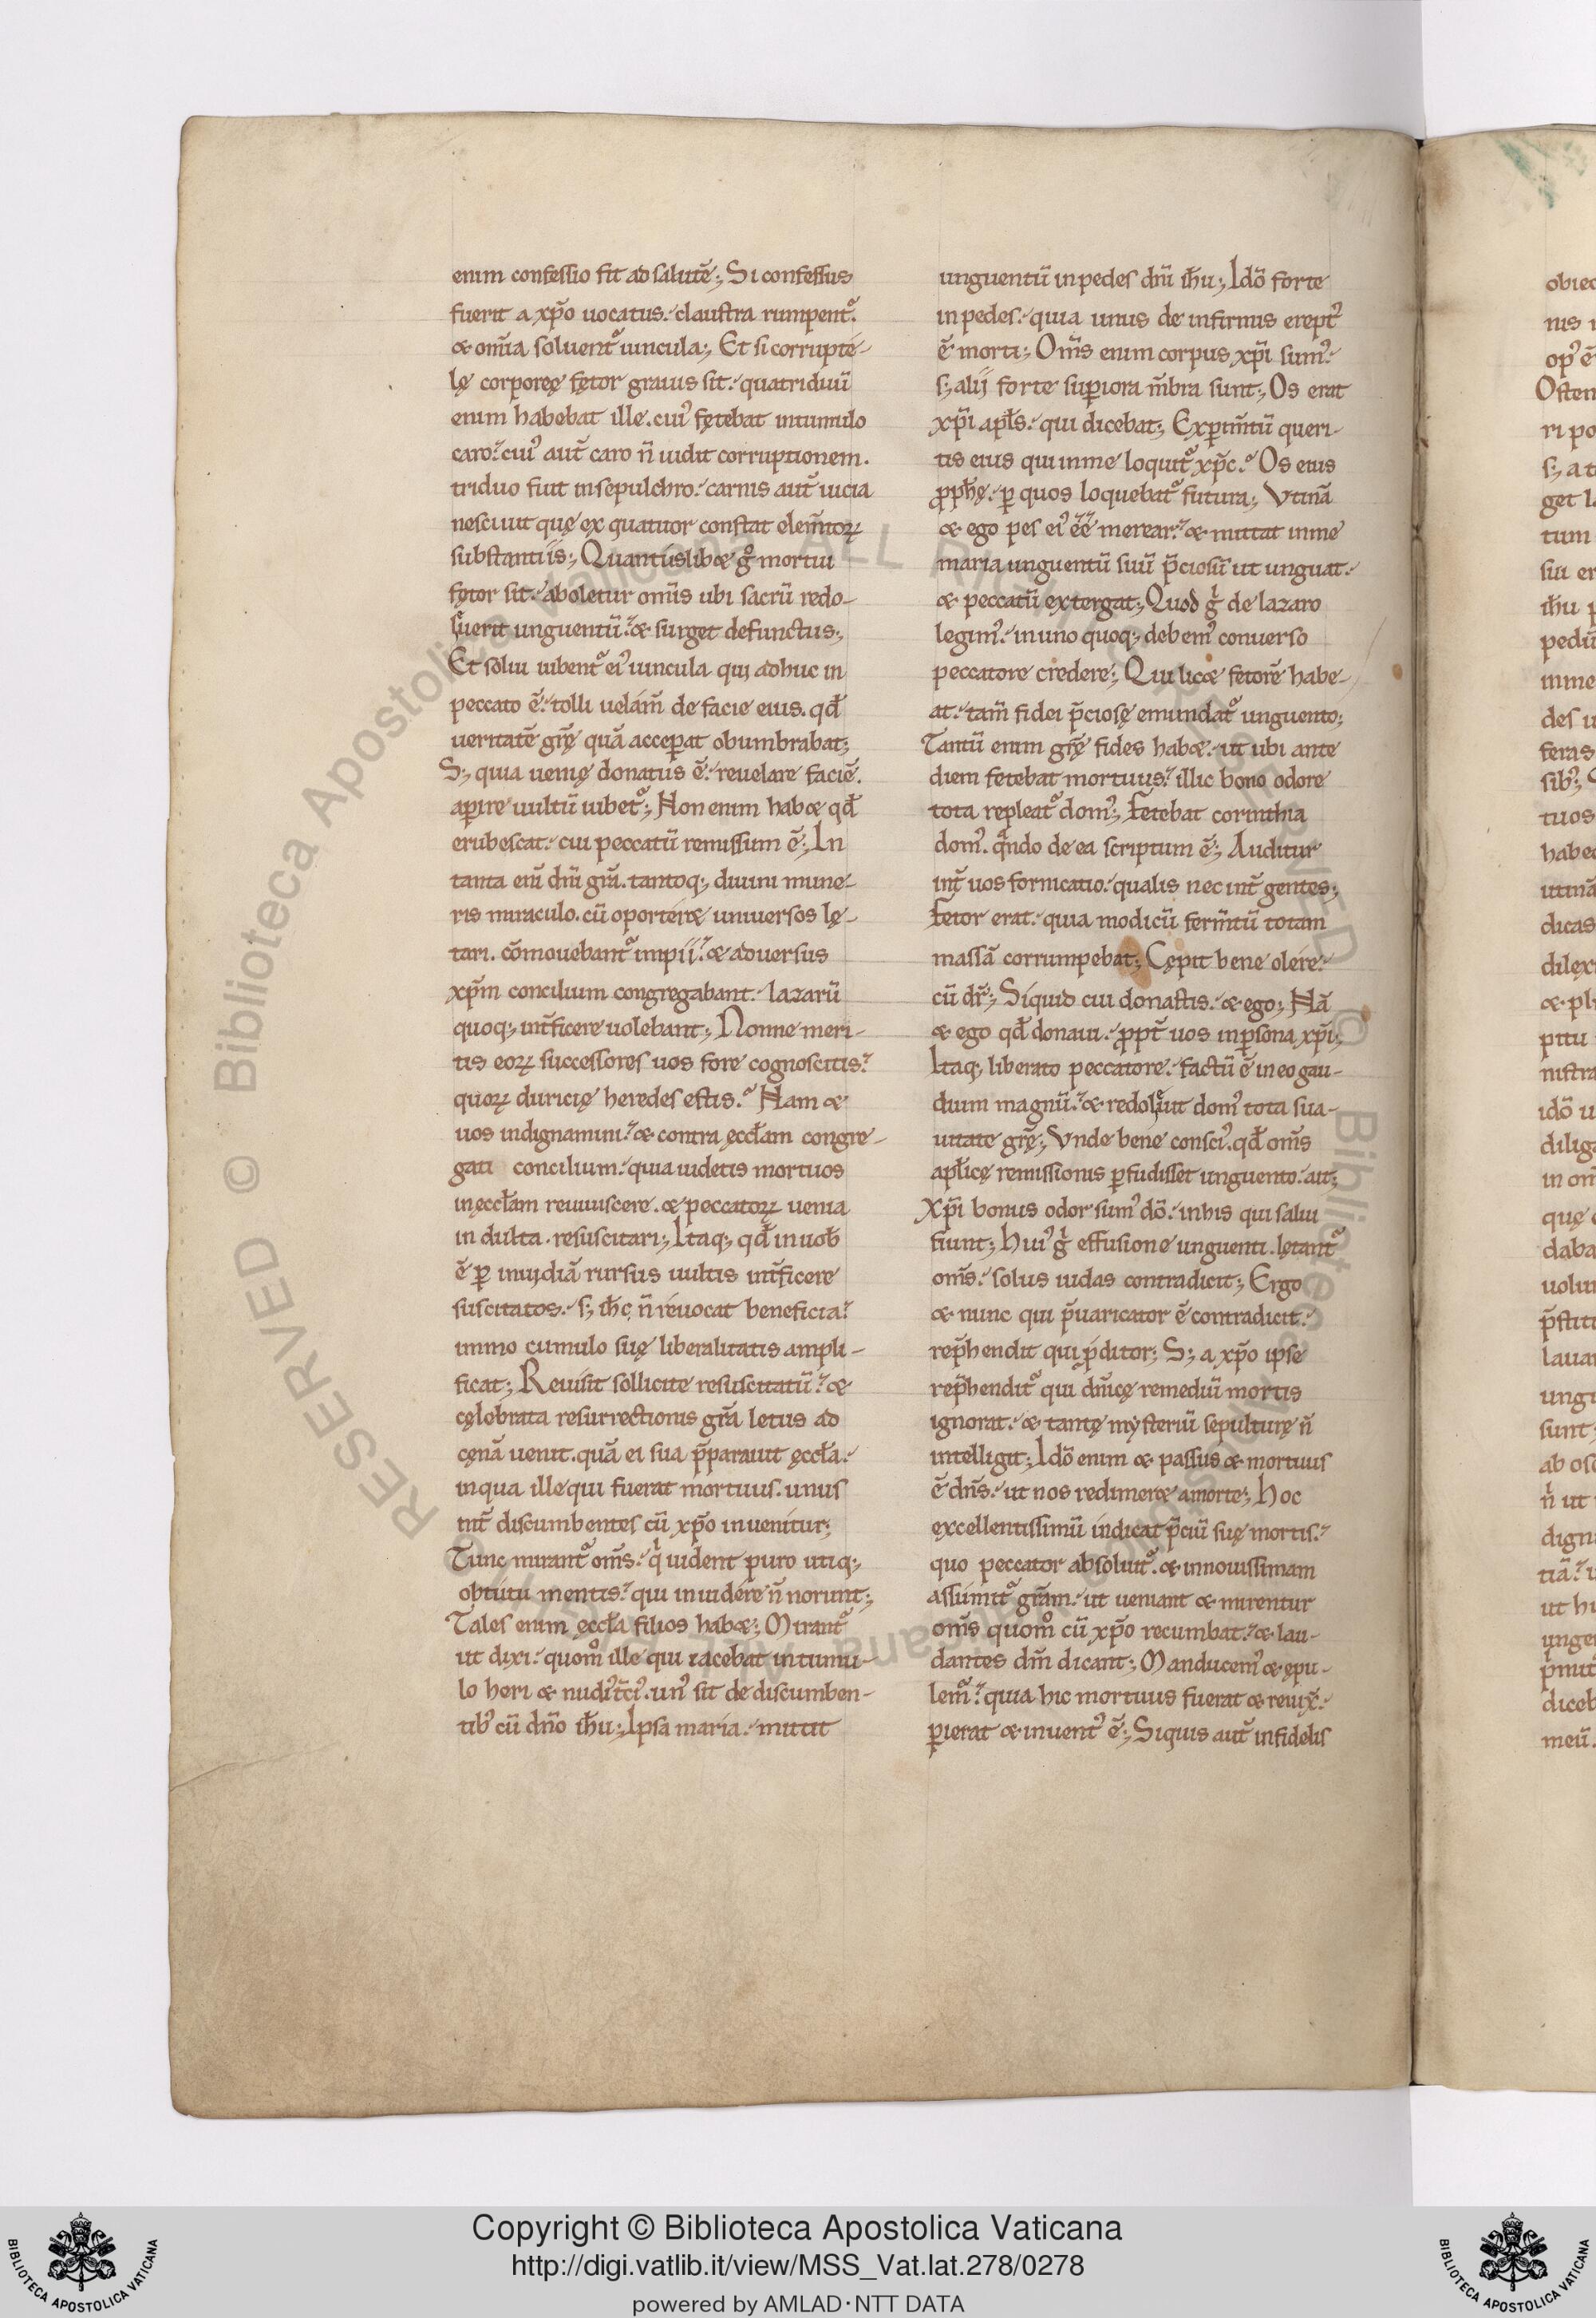 enim confessio fit ad salutē; Si confessus
fuerit a xp̄o uocatus. claustra rumpent᷑.
& om̄ia soluent᷑ uincula; Et si corrupte-
lę corporeę fętor grauis sit. quatriduū
enim habebat ille. cui᷒ fętebat intumulo
caro. cui᷒ aut̄ caro n̄ uidit corruptionem.
triduo fuit insepulchro. carnis aut̄ uicia
nesciuit quę ex quatuor constat elem̄toꝝ
substantiis; Quantuslib& g̊ mortui
fętor sit. aboletur om̄is ubi sacrū redo-
luerit unguentū. & surget defunctus;
Et solui iubent᷑ ei᷒ uincula qui adhuc in
peccato ē. tolli uelam̄ de facie eius. qđ
ueritatē grę̄ quā acceꝑat obumbrabat;
S; quia uenię donatus ē. reuelare faciē.
aꝑire uultū iubet᷑; Non enim hab& qđ
erubescat. cui peccatū remissum ē; In
tanta eni᷒ dn̄i gr̄a. tantoq; diuini mune-
ris miraculo. cū oporter& uniuersos lę-
tari. cōmouebant᷑ impii. & aduersus
xp̄m concilium congregabant. lazarū
quoq; int̄ficere uolebant; Nonne meri-
tis eoꝝ successores uos fore cognoscitis.
quoꝝ duricię heredes estis. Nam &
uos indignamini. & contra ęccłam congre-
gati concilium. quia uidetis mortuos
inęccłam reuiuiscere. & peccatoꝝ uenia
indulta. resuscitari; Itaq; qđ inuob̄
ē ꝑ inuidiā rursus uultis int̄ficere
suscitatos. s; ih̄c n̄ reuocat beneficia.
immo cumulo suę liberalitatis ampli-
ficat; Reuisit sollicite resuscitatū. &
cęlebrata resurrectionis gr̄a letus ad
cęnā uenit. quā ei sua p̄parauit ęccła.
inqua ille qui fuerat mortuus. unus
int̄ discumbentes cū xp̄o inuenitur;
Tunc mirant᷑ om̄s. qͥ uident puro utiq;
obtutu mentis. qui inuidere n̄ norunt;
Tales enim ęccła filios hab&; Mirant᷑
ut dixi. quom̊ ille qui iacebat intumu-
lo heri & nudi᷒terci᷒. un᷒ sit de discumben-
tib᷒ cū dn̄o ih̄u; Ipsa maria. mittit
unguentū inpedes dn̄i ih̄u; Idō forte
inpedes. quia unus de infirmis erept᷒
ē morti; Om̄s enim corpus xp̄i sum᷒.
s; alij forte suꝑiora m̄bra sunt; Os erat
xp̄i apłs. qui dicebat; Exꝑim̄tū queri-
tis eius qui inme loquit᷑ xp̄c. Os eius
ꝓph̄ę. ꝑ quos loquebat᷑ futura; Vtinā
& ego pes ei᷒ ēē merear. & mittat inme
maria unguentū suū p̄ciosū ut unguat.
& peccatū extergat; Quod gͥ de lazaro
legim᷒. inuno quoq; debem᷒ conuerso
peccatore credere; Qui lic& fetorē habe-
at. tam̄ fidei p̄ciosę emundat᷑ unguento;
Tantū enim grę̄ fides hab&. ut ubi ante
diem fetebat mortuus. illic bono odore
tota repleat᷑ dom᷒; Fetebat corinthia
dom᷒. qn̄do de ea scriptum ē; Auditur
int̄ uos fornicatio. qualis nec int̄ gentes;
Fetor erat. quia modicū ferm̄tū totam
massā corrumpebat; Cępit bene olere.
cū dr̄; Siquid cui donastis. & ego; Nā
& ego qđ donaui. ꝓpt̄ uos inꝑsona xp̄i;
Itaq; liberato peccatore. factū ē ineo gau-
dium magnū. & redoluit dom᷒ tota sua-
uitate grę̄; Vnde bene consci᷒. qđ om̄s
apłicę remissionis ꝑfudisset unguento. ait;
Xp̄i bonus odor sum᷒ dō. inhis qui salui
fiunt; Hui᷒ gͥ effusione unguenti. lętant᷑
om̄s. solus iudas contradicit; Ergo
& nunc qui p̄uaricator ē contradicit.
rep̄hendit qui ꝓditor; S; a xp̄o ipse
rep̄hendit᷑ qui dn̄icę remediū mortis
ignorat. & tantę mysteriū sepulturę n̄
intelligit; Idō enim & passus & mortuus
ē dn̄s. ut nos redimer& amorte; Hoc
excellentissimū indicat p̄ciū suę mortis.
quo peccator absoluit᷑. & innouissimam
assumit᷑ gr̄am. ut ueniant & mirentur
om̄s quom̊ cū xp̄o recumbat. & lau-
dantes dm̄ dicant; Manducem᷒ & ępu-
lem᷑. quia hic mortuus fuerat & reuix̄.
ꝑierat & inuent᷒ ē; Siquis aut̄ infidelis
obiec
nis
op᷒ ē
Osten
ri po
s; a t
get l
tum
sui er
ih̄u p
pedū
inme
des u
feras
sib᷒;
tuos
habe
utinā
dicas
dilex
& pl
pitu
nistra
idō u
dilig
in om̄
quę
daba
uolu
p̄stiti
lauar
ungu
sunt;
ab os
n̄ ut
digna
tiā.
ut hi
unge
p̄mit
diceb
meū.
© Biblioteca Apostolica Vaticana ALL RIGHTS RESERVED
Copyright © Biblioteca Apostolica Vaticana
http://digi.vatlib.it/view/MSS_Vat.lat.278/0278
powered by AMLAD·NTT DATA
BIBLIOTECA APOSTOLICA VATICANA
BIBLIOTECA APOSTOLICA VATICANA